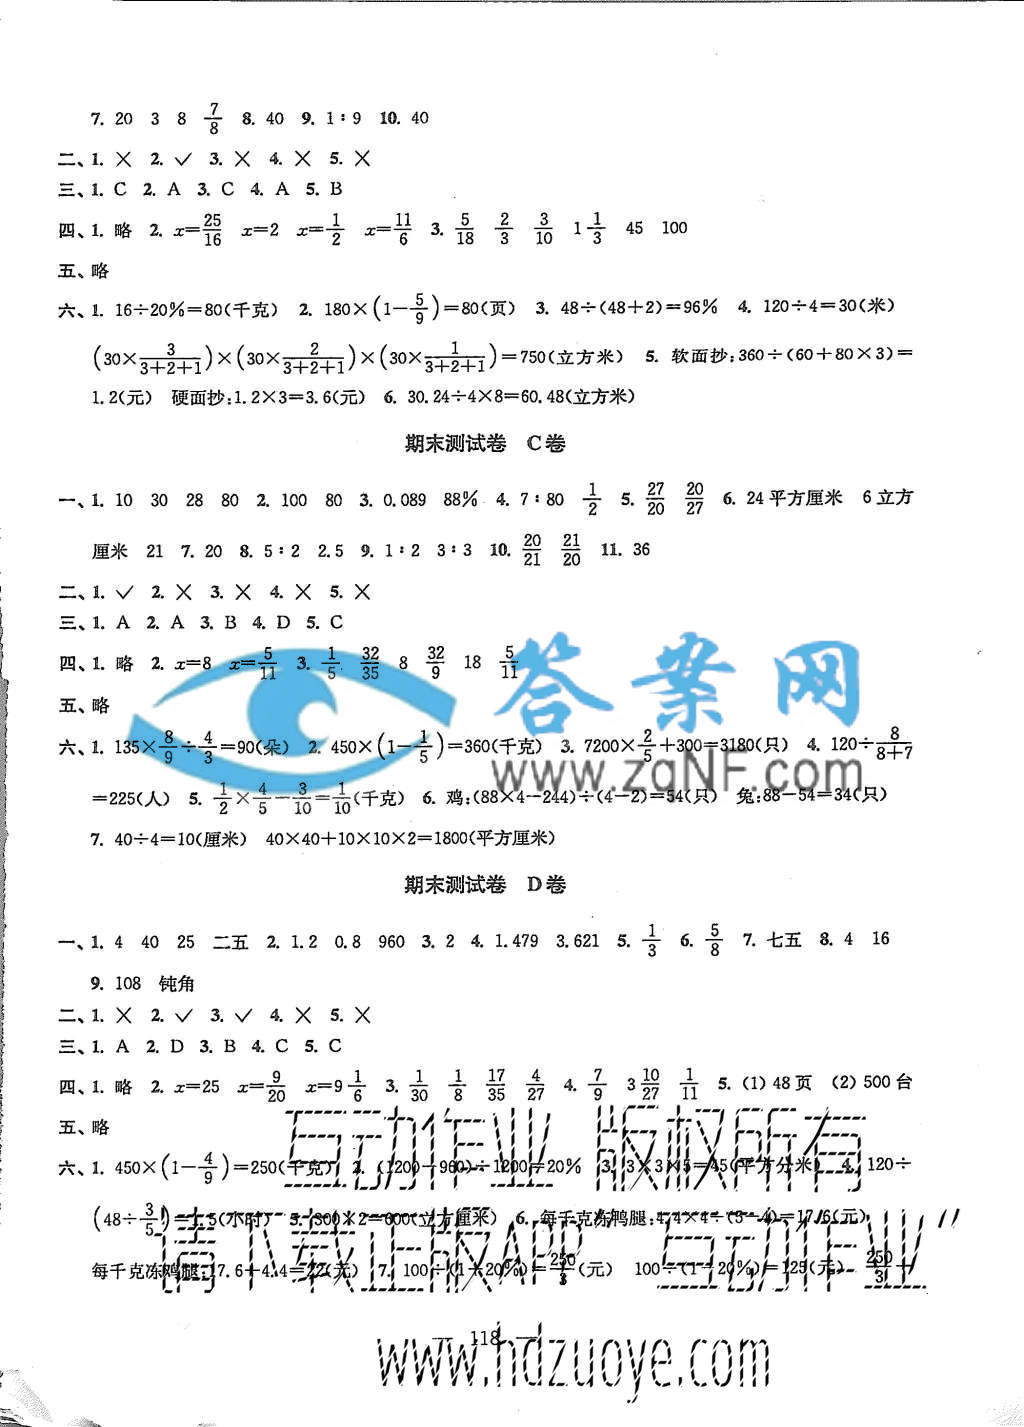 7. 20 3 8 7/8 8. 40 9. 1∶9 10. 40
二、1. × 2. ✓ 3. × 4. × 5. ×
三、1. C 2. A 3. C 4. A 5. B
四、1. 略 2. x=25/16 x=2 x=1/2 x=11/6 3. 5/18 2/3 3/10 1 1/3 45 100
五、略
六、1. 16÷20%=80(千克) 2. 180×(1-5/9)=80(页) 3. 48÷(48+2)=96% 4. 120÷4=30(米)
(30×3/(3+2+1))×(30×2/(3+2+1))×(30×1/(3+2+1))=750(立方米) 5. 软面抄:360÷(60+80×3)=
1.2(元) 硬面抄:1.2×3=3.6(元) 6. 30.24÷4×8=60.48(立方米)
期末测试卷 C卷
一、1. 10 30 28 80 2. 100 80 3. 0.089 88% 4. 7∶80 1/2 5. 27/20 20/27 6. 24平方厘米 6立方
厘米 21 7. 20 8. 5∶2 2.5 9. 1∶2 3∶3 10. 20/21 21/20 11. 36
二、1. ✓ 2. × 3. × 4. × 5. ×
三、1. A 2. A 3. B 4. D 5. C
四、1. 略 2. x=8 x=5/11 3. 1/5 32/35 8 32/9 18 5/11
五、略
六、1. 135×8/9÷4/3=90(朵) 2. 450×(1-1/5)=360(千克) 3. 7200×2/5+300=3180(只) 4. 120÷8/(8+7)
=225(人) 5. 1/2×4/5-3/10=1/10(千克) 6. 鸡:(88×4-244)÷(4-2)=54(只) 兔:88-54=34(只)
7. 40÷4=10(厘米) 40×40+10×10×2=1800(平方厘米)
答案网
www.zqNF.com
期末测试卷 D卷
一、1. 4 40 25 二五 2. 1.2 0.8 960 3. 2 4. 1.479 3.621 5. 1/3 6. 5/8 7. 七五 8. 4 16
9. 108 钝角
二、1. × 2. ✓ 3. ✓ 4. × 5. ×
三、1. A 2. D 3. B 4. C 5. C
四、1. 略 2. x=25 x=9/20 x=9 1/6 3. 1/30 1/8 17/35 4/27 4. 7/9 3 10/27 1/11 5. (1) 48页 (2) 500台
五、略
六、1. 450×(1-4/9)=250(千克) 2. (1200-960)÷1200=20% 3. 3×3×5=45(平方分米) 4. 120÷
(48÷3/5)=1.5(小时) 5. 300×2=600(立方厘米) 6. 每千克冻鸭腿:4.4×4÷(5-4)=17.6(元)
每千克冻鸡腿:17.6+4.4=22(元) 7. 100÷(1+20%)=250/3(元) 100÷(1-20%)=125(元) 250/3+
互动作业 版权所有
请下载正版APP "互动作业"
— 118 —
www.hdzuoye.com